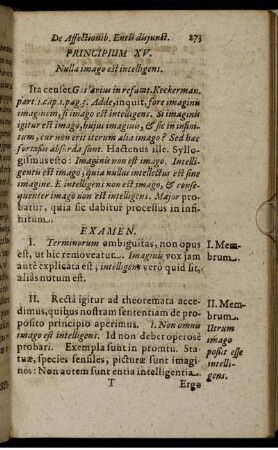 De Affectionib. Entis disjunct. 273
PRINCIPIUM XV.
Nulla imago est intelligens.
Ita censet Goslavius in refutat. Keckerman.
part. 1. cap. 1. pag. 5. Adde, inquit, fore imaginis
imaginem, si imago est intelligens. Si imaginis
igitur est imago, hujus imaginis, & sic in infini-
tum, cur non erit iterum alia imago? Sed hæc
forsasis absurda sunt. Hactenus ille. Syllo-
gismus esto: Imaginis non est imago. Intelligen-
tis est imago, quia nullus intellectus est sine
imagine. E intelligens non est imago, & conse-
quenter imago non est intelligens. Major pro-
batur, quia sic dabitur processus in infi-
nitum.
EXAMEN.
I. Terminorum ambiguitas, non opus
est, ut hic removeatur. Imaginis vox jam
antè explicata est; intelligens verò quid sit,
aliàs notum est.
I. Mem-
brum.
II. Rectà igitur ad theoremata acce-
dimus, quibus nostram sententiam de pro-
posito principio aperimus. 1. Non omnis
imago est intelligens. Id non debet operosè
probari. Exempla sunt in promtu. Sta-
tuæ, species sensiles, picturæ sunt imagi-
nes: Non autem sunt entia intelligentia.
II. Mem-
brum.
Utrum
imago
possit esse
intelli-
gens.
T Ergo